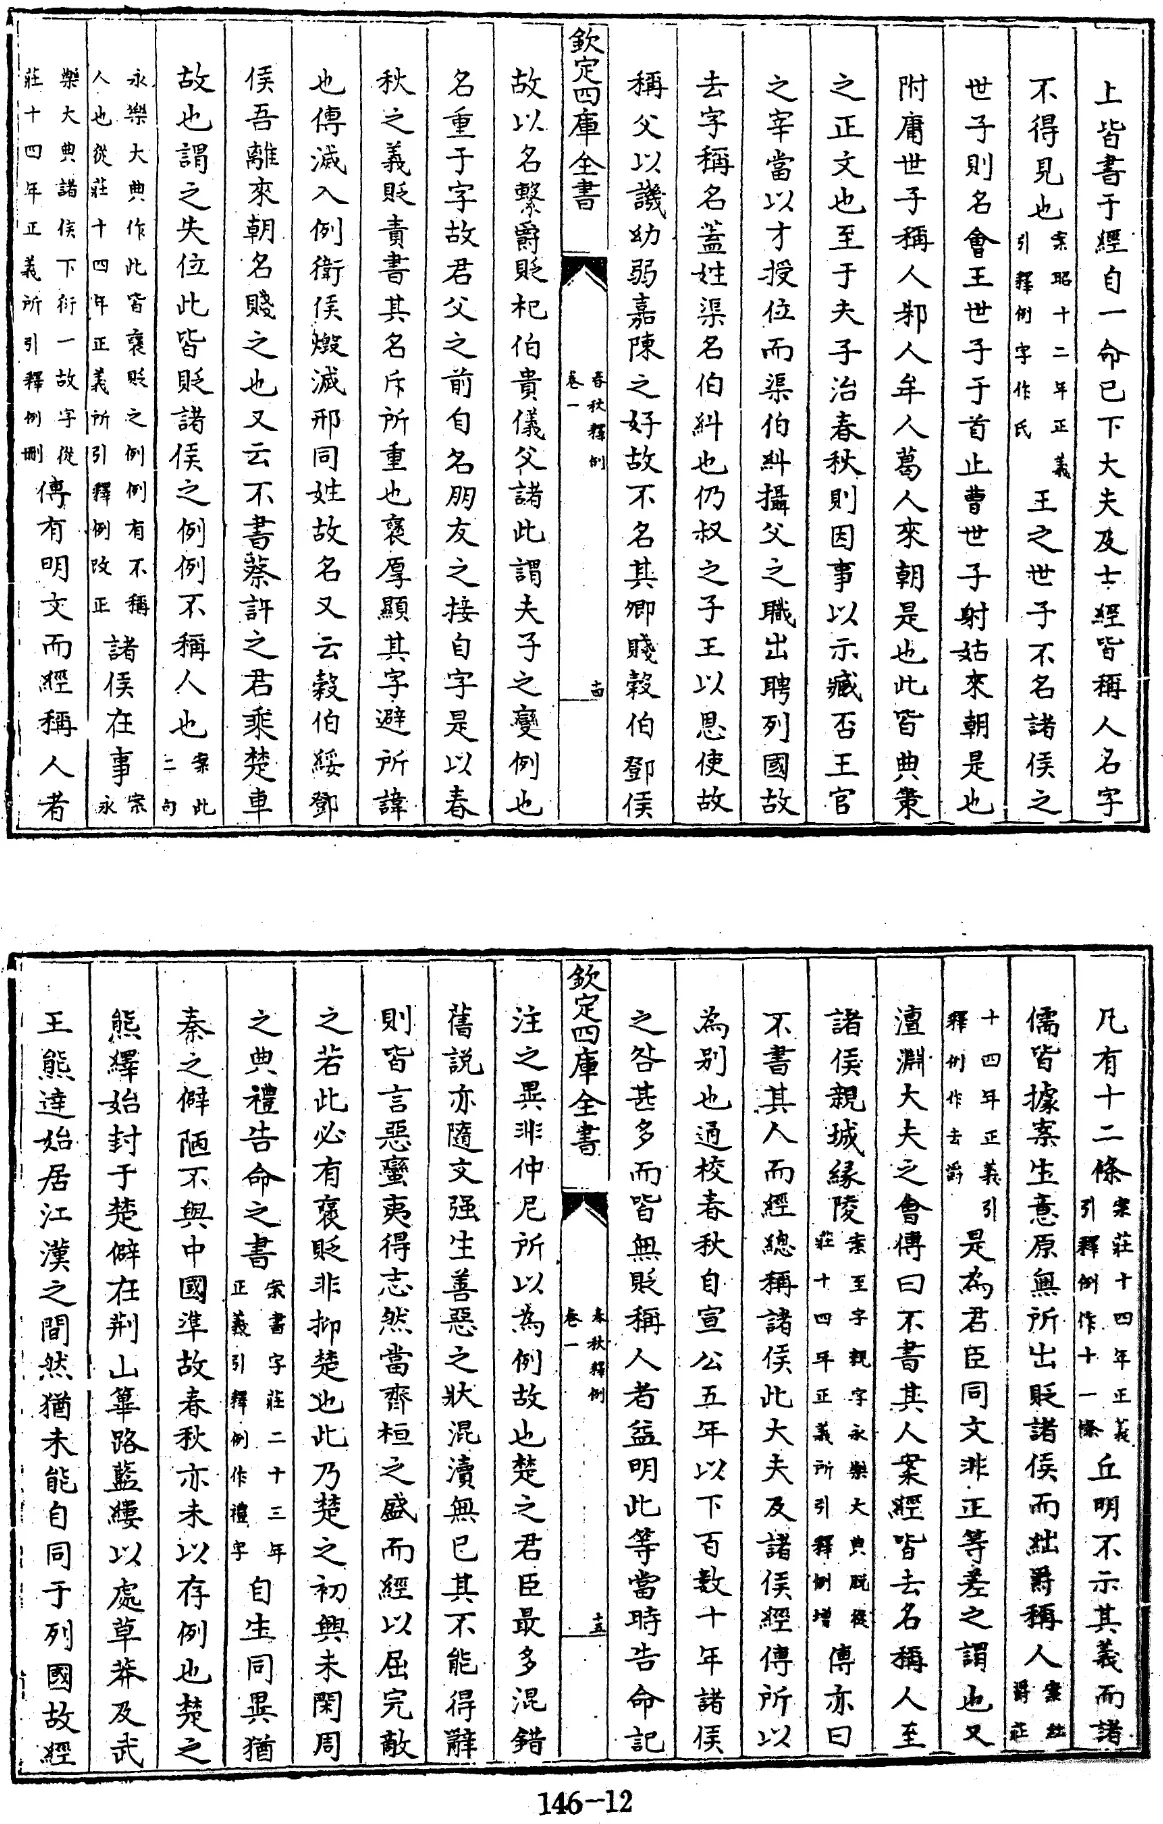 上皆書于經自一命已下大夫及士經皆稱人名字
不得見也案昭十二年正義引釋例字作氏王之世子不名諸侯之
世子則名會王世子于首止曹世子射姑來朝是也
附庸世子稱人邾人牟人葛人來朝是也此皆典䇿
之正文也至于夫子治春秋則因事以示臧否王官
之宰當以才授位而渠伯糾攝父之職出聘列國故
去字稱名蓋姓渠名伯糾也仍叔之子王以恩使故
稱父以譏幼弱嘉陳之好故不名其卿賤榖伯鄧侯
欽定四庫全書
春秋釋例
卷一
十四
故以名繫爵貶杞伯貴儀父諸此謂夫子之變例也
名重于字故君父之前自名朋友之接自字是以春
秋之義貶責書其名斥所重也褒厚顯其字避所諱
也傳滅入例衛侯燬滅邢同姓故名又云榖伯綏鄧
侯吾離來朝名賤之也又云不書蔡許之君乘楚車
故也謂之失位此皆貶諸侯之例例不稱人也案此二句
永樂大典作此皆褒貶之例例有不稱人也從莊十四年正義所引釋例改正諸侯在事案永
樂大典諸侯下衍一故字從莊十四年正義所引釋例刪傳有明文而經稱人者
凡有十二條案莊十四年正義引釋例作十一條丘明不示其義而諸
儒皆據案生意原無所出貶諸侯而絀爵稱人案絀爵莊
十四年正義引釋例作去爵是為君臣同文非正等差之謂也又
澶淵大夫之會傳曰不書其人案經皆去名稱人至
諸侯親城緣陵案至字親字永樂大典脱從莊十四年正義所引釋例增傳亦曰
不書其人而經總稱諸侯此大夫及諸侯經傳所以
為别也通校春秋自宣公五年以下百數十年諸侯
之咎甚多而皆無貶稱人者益明此等當時告命記
欽定四庫全書
春秋釋例
卷一
十五
注之異非仲尼所以為例故也楚之君臣最多混錯
舊説亦隨文强生善惡之狀混瀆無已其不能得辭
則皆言惡蠻夷得志然當齊桓之盛而經以屈完敵
之若此必有褒貶非抑楚也此乃楚之初興未閑周
之典禮告命之書案書字莊二十三年正義引釋例作禮字自生同異猶
秦之僻陋不與中國準故春秋亦未以存例也楚之
熊繹始封于楚僻在荆山蓽路藍縷以處草莽及武
王熊達始居江漢之間然猶未能自同于列國故經
146-12